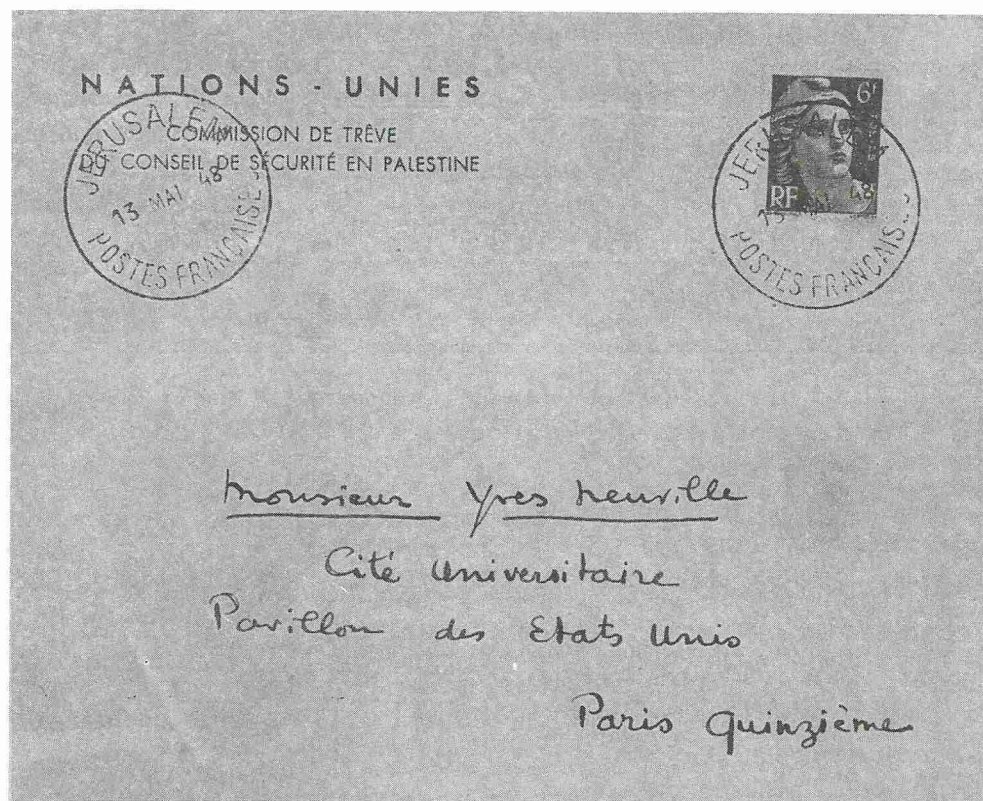 NATIONS - UNIES
COMMISSION DE TRÊVE
DU CONSEIL DE SÉCURITÉ EN PALESTINE
JERUSALEM
13 MAI 48
POSTES FRANÇAISES
6F
RF
JERUSALEM
13 MAI 48
POSTES FRANÇAISES
Monsieur Yves Neuville
Cité Universitaire
Pavillon des Etats Unis
Paris Quinzième